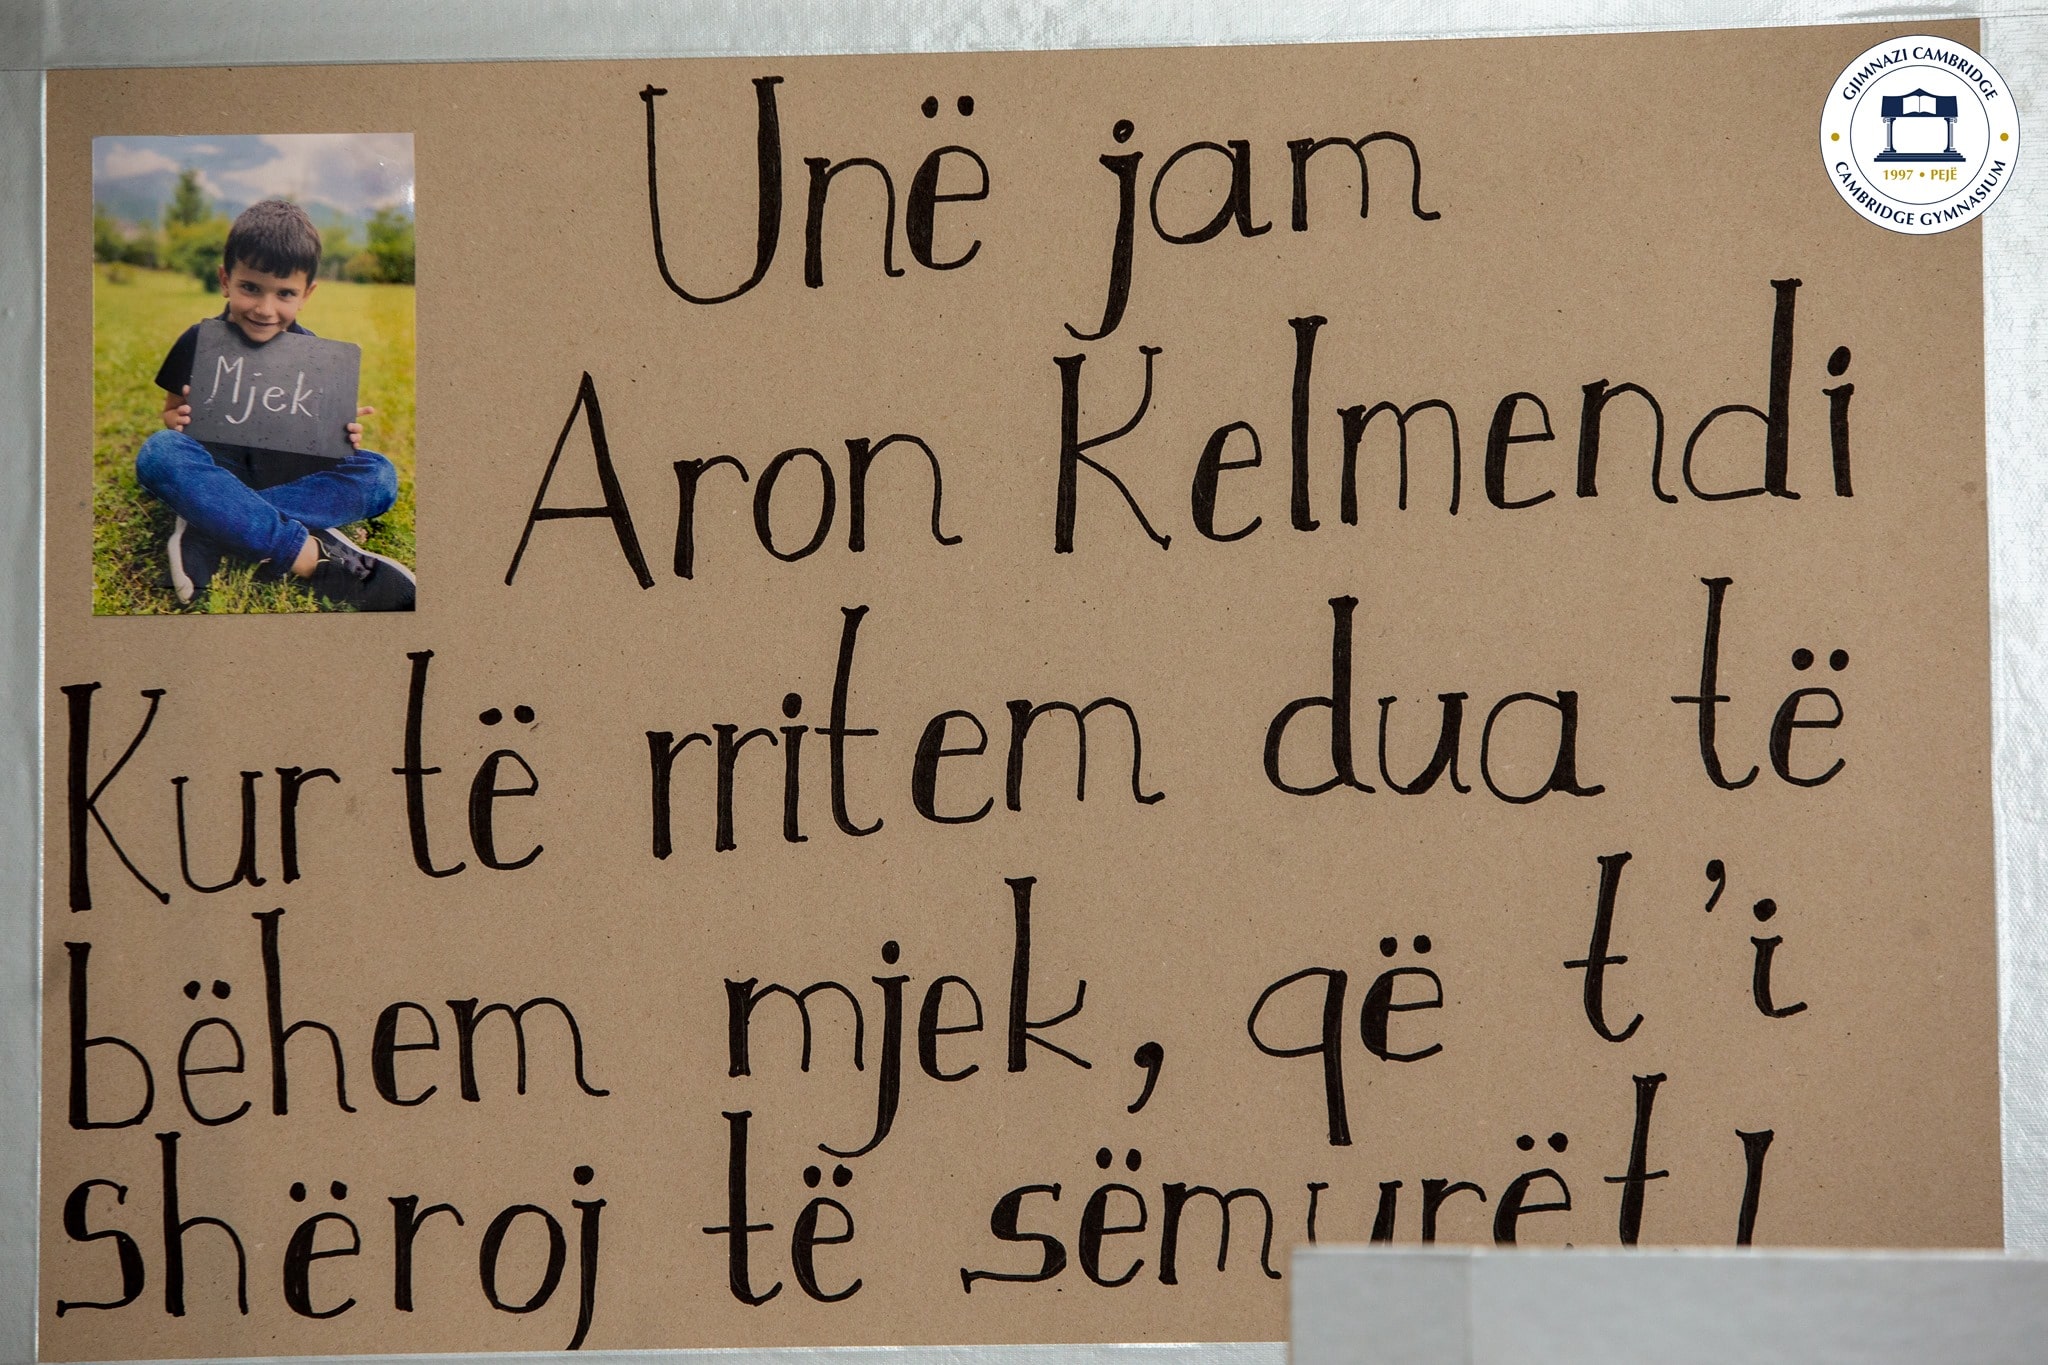 Unë jam
Aron Kelmendi
Kur të rritem dua të
bëhem mjek, që t'i
shëroj të sëmurët!
Mjek
GJIMNAZI CAMBRIDGE
1997 • PEJË
CAMBRIDGE GYMNASIUM